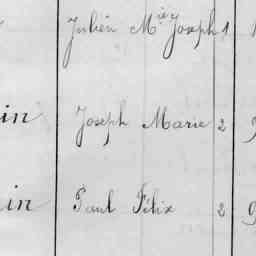 Julien Mie Joseph 1
in Joseph Marie 2
in Paul Félix 2